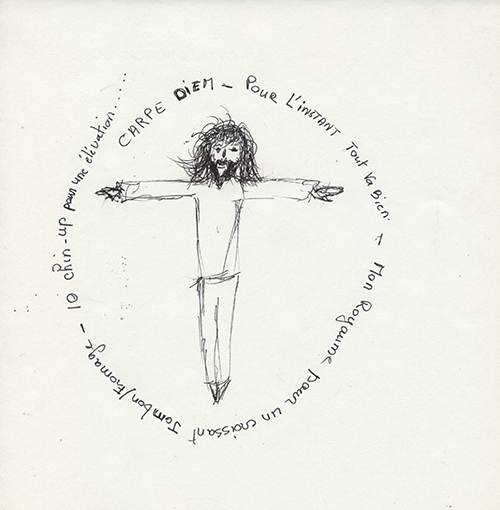 CARPE DIEM - POUR L'INSTANT Tout Va Bien - Mon Royaume pour un croissant Jambon/Fromage - 10 chin-up pour une élévation.....